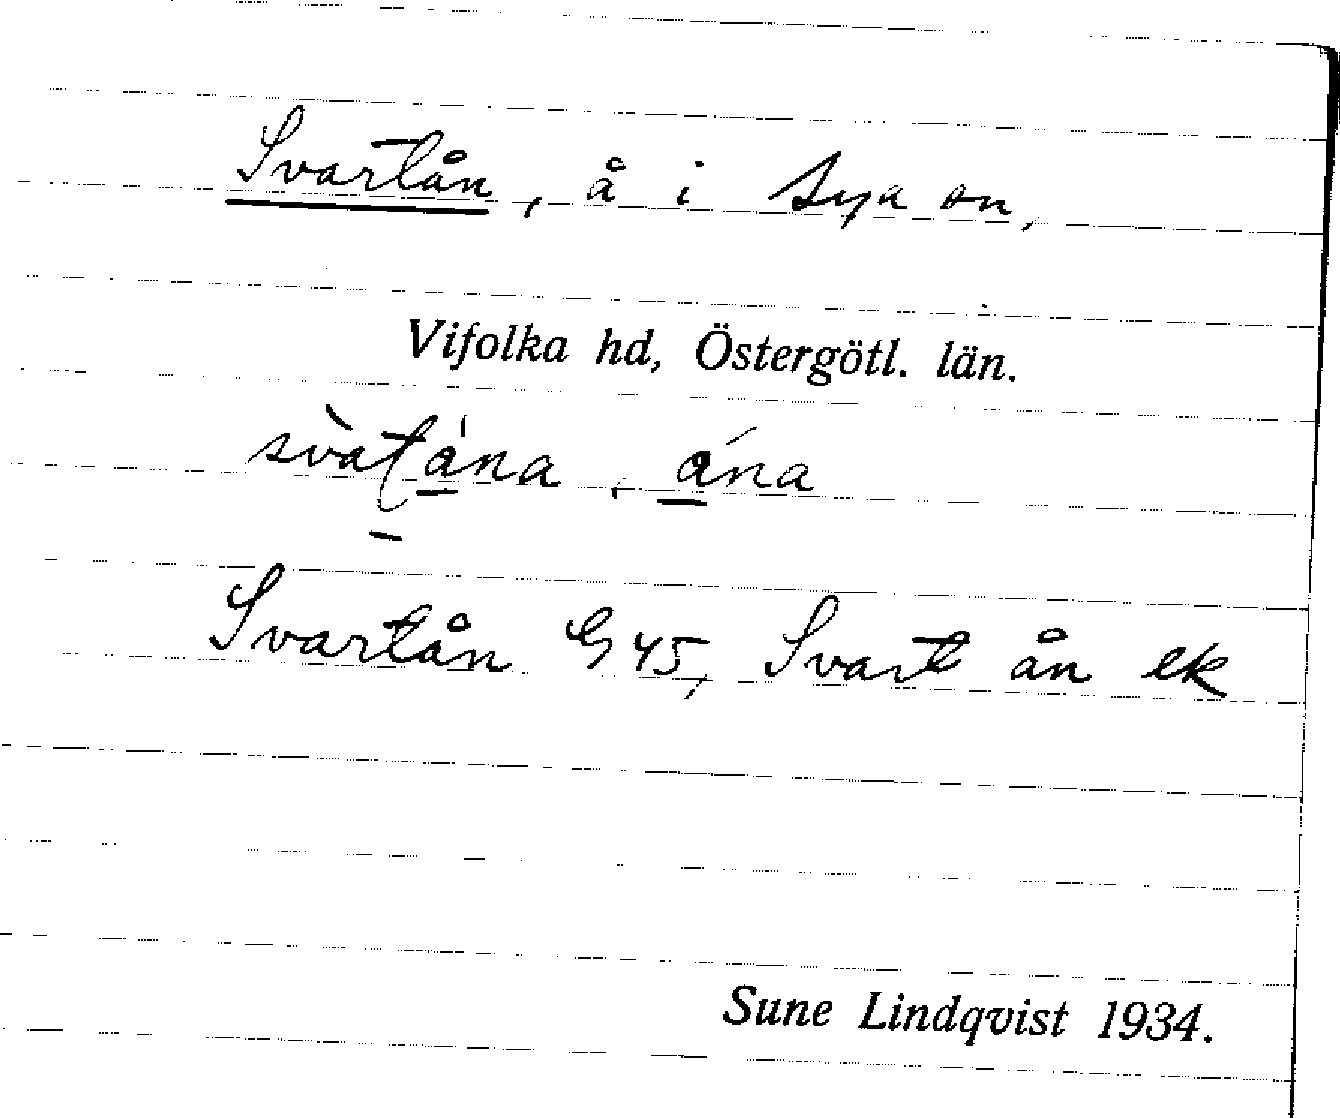 Svartån, å i Sya sn,
Vifolka hd, Östergötl. län.
svat̀ána, ána
Svartån G 45, Svart ån ek
Sune Lindqvist 1934.